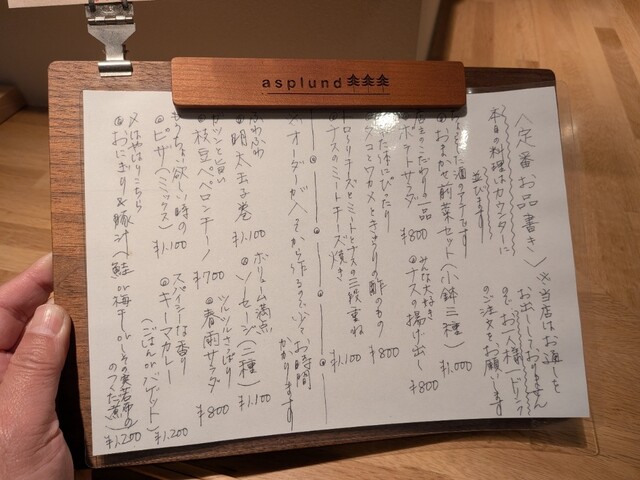 asplund
〈定番お品書き〉
本日の料理はカウンターに
並びます
※当店はお通しを
お出ししておりません
のでお一人様1ドリンク
のご注文をお願いします
酒のアテです
おまかせ前菜セット(小鉢三種) ¥1,000
こだわりの一品
ポテトサラダ ¥800
みんな大好き
ナスの揚げ出し ¥800
ぴったり
タコとワカメときゅうりの酢のもの ¥800
チーズとミートとナスの三段重ね
ナスのミートチーズ焼き ¥1,100
オーダーが入ってから作るので少々お時間
かかります
ふわふわ
明太玉子巻 ¥1,100
ボリューム満点
ソーセージ(二種) ¥1,100
ガツンと旨い
枝豆ペペロンチーノ ¥700
ツルツルさっぱり
春雨サラダ ¥800
もうちょい欲しい時の
ピザ(ミックス) ¥1,100
スパイシーな香り
キーマカレー
(ごはんorバゲット) ¥1,200
〆はやっぱりこちら
おにぎり&豚汁(鮭or梅干しorしその実若布の
つくだ煮) ¥1,200